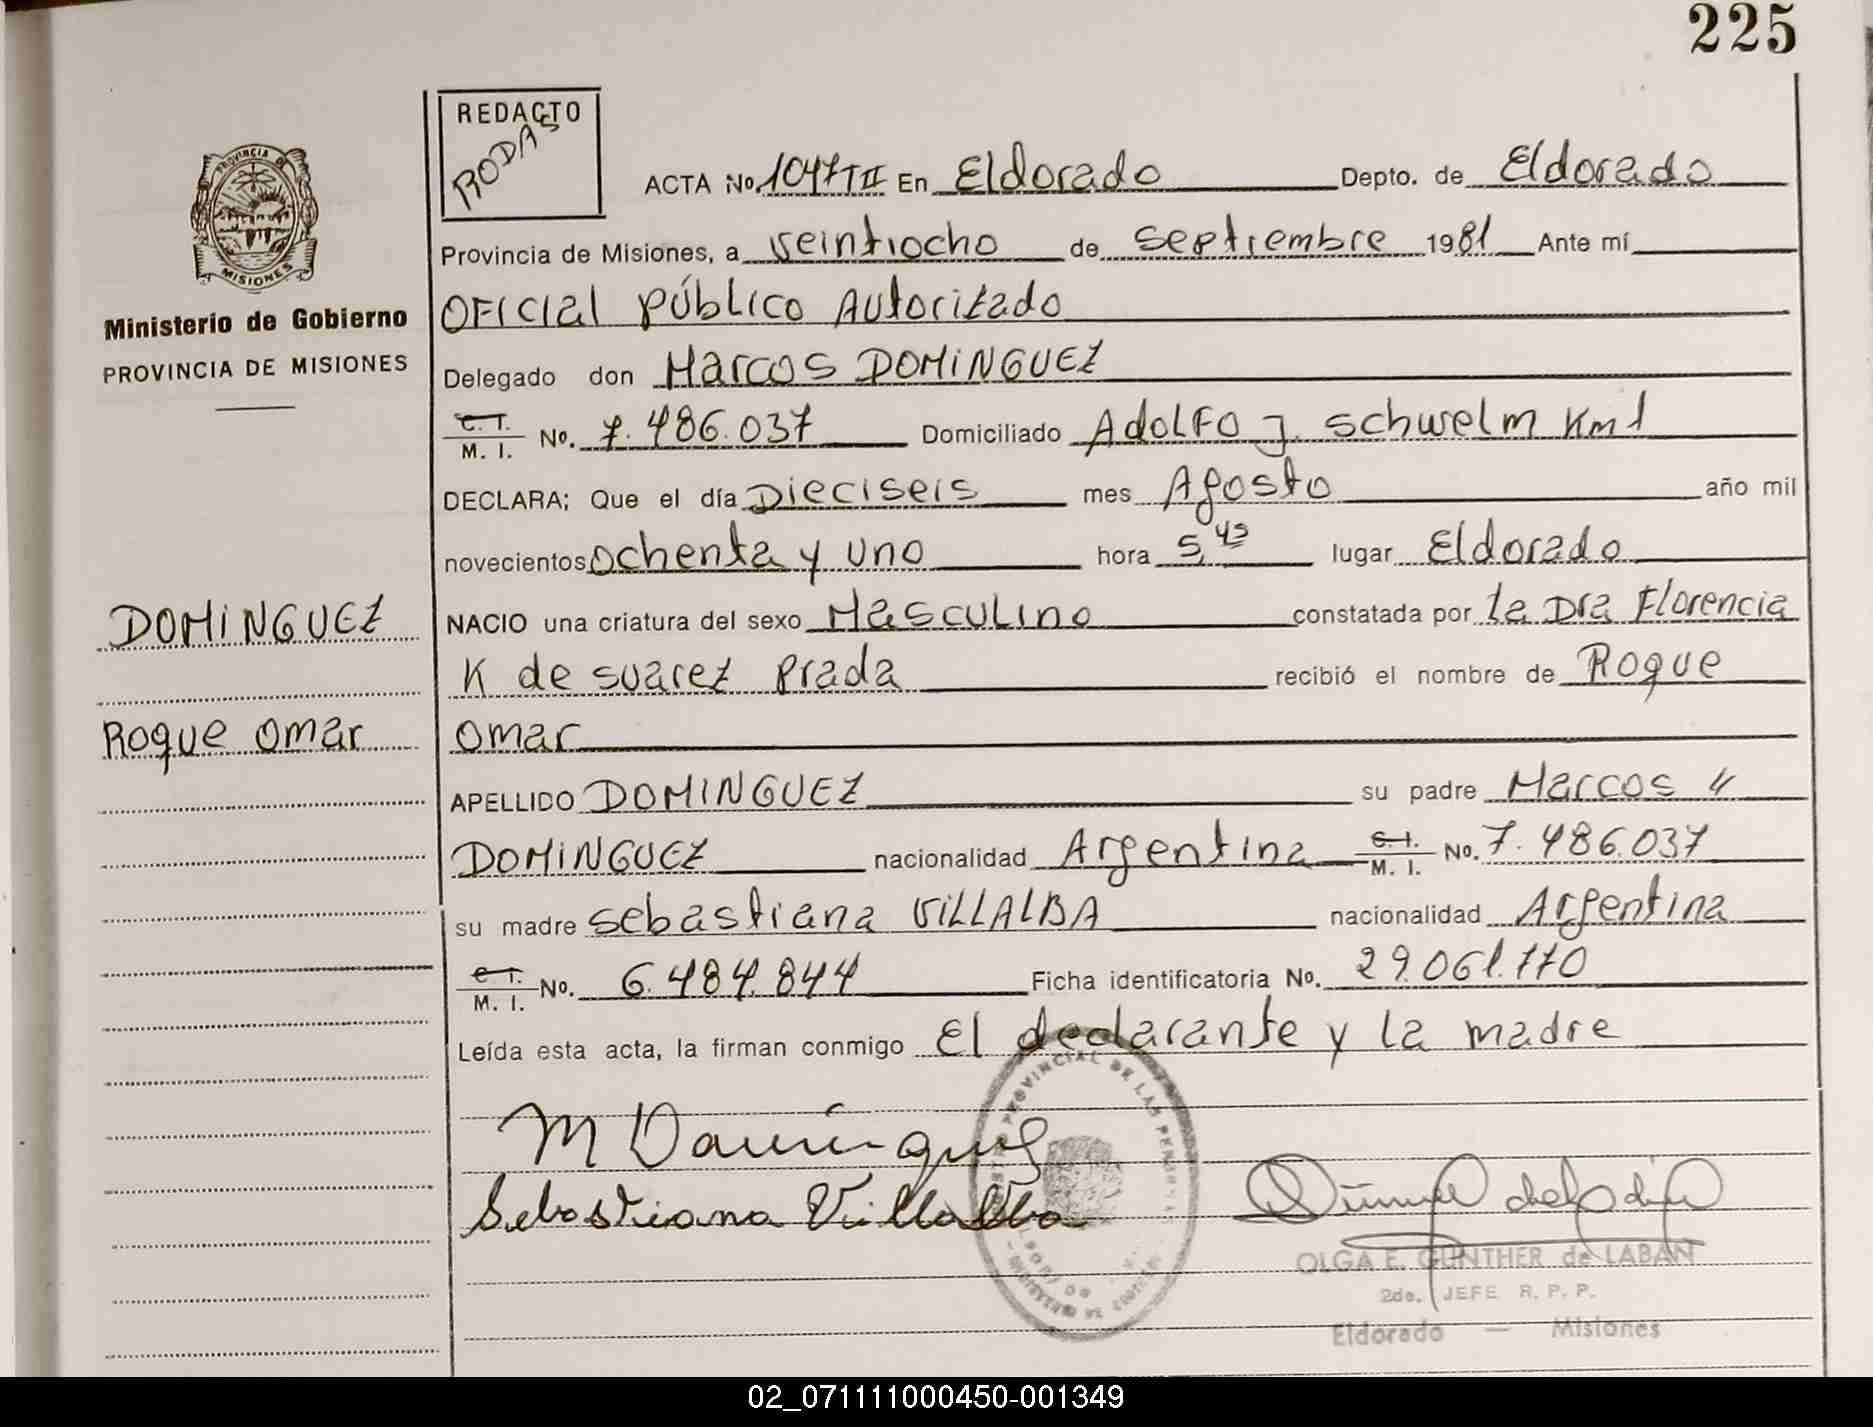 225
REDACTO
RODAS
ACTA No. 1047 TII En Eldorado Depto. de Eldorado
PROVINCIA DE
MISIONES
Provincia de Misiones, a veintiocho de septiembre 1981 Ante mí
Ministerio de Gobierno
PROVINCIA DE MISIONES
OFICIAL PÚBLICO AUTORIZADO
Delegado don Marcos DOMINGUEZ
C. I.
M. I. No. 7.486.037 Domiciliado Adolfo J. Schwelm Km 1
DECLARA; Que el día Dieciseis mes Agosto año mil
novecientos ochenta y uno hora 5,45 lugar Eldorado
DOMINGUEZ
NACIO una criatura del sexo Masculino constatada por la Dra Florencia
K de suarez Prada recibió el nombre de Roque
Roque omar
omar
APELLIDO DOMINGUEZ su padre Marcos "
DOMINGUEZ nacionalidad Argentina C. I. M. I. No. 7.486.037
su madre sebastiana VILLALBA nacionalidad Argentina
C. I.
M. I. No. 6.484.844 Ficha identificatoria No. 29.061.110
Leída esta acta, la firman conmigo El declarante y la madre
M Dominguez
Sebastiana Villalba
PROVINCIAL DE LAS PERSONAS
OLGA E. GUNTHER de LABAN
2do. JEFE R. P. P.
Eldorado — Misiones
02_071111000450-001349